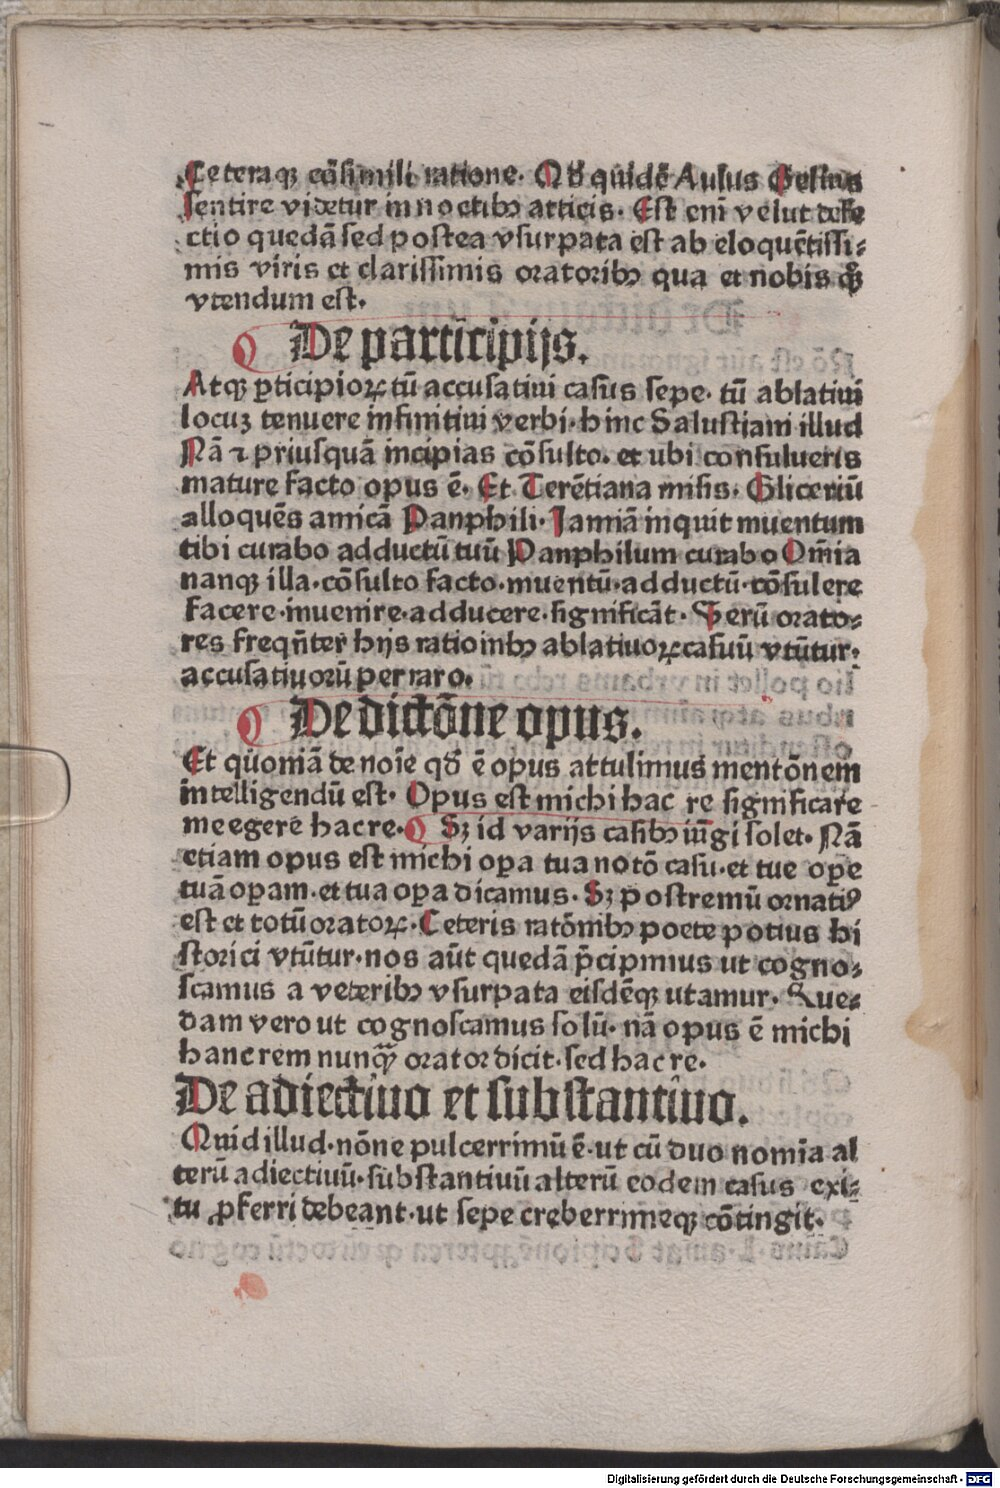 Ceteraqꝫ cōsimili ratione. Qd̛ quidē Aulus Gelius
sentire videtur in noctibꝫ atticis. Est eni velut defe
ctio quedā sed postea vsurpata est ab eloquētissi-
mis viris et clarissimis oratoribꝫ qua et nobis qꝫ
vtendum est.
De participijs.
Atqꝫ ꝑticipioꝝ tū accusatiui casus sepe. tū ablatiui
locuꝫ tenuere infinitiui verbi. hinc Salustiani illud
Nā ⁊ priusquā incipias cōsulto. et ubi consulueris
mature facto opus ē. Et Terētiana misis. Gliceriū
alloquēs amicā Panphili. Jamiā inquit inuentum
tibi curabo adductū tuū Panphilum curabo Om̄ia
nanqꝫ illa. cōsulto facto. inuentū. adductū. cōsulere
facere. inuenire. adducere. significāt. Verū orato-
res freqn̄ter hijs ratioinbꝫ ablatiuoꝝ casuū vtūtur.
accusatiuorū perraro.
De dictōne opus.
Et qūoniā de noie qd̛ ē opus attulimus mentōnem
intelligendū est. Opus est michi hac re significare
me egere hac re. Sꝫ id varijs casibꝫ iūgi solet. Nā
etiam opus est michi oꝑa tua noto casu. et tue oꝑe
tuā oꝑam. et tua oꝑa dicamus. Sꝫ postremū ornatiꝰ
est et totū oratoꝝ. Ceteris ratōnibꝫ poete potius hi
storici vtūtur. nos aūt quedā p̄cipimus ut cogno-
scamus a veteribꝫ vsurpata eisdēqꝫ utamur. Que-
dam vero ut cognoscamus solū. nā opus ē michi
hanc rem nunqꝫ orator dicit. sed hac re.
De adiectiuo et substantiuo.
Quid illud. nōne pulcerrimū ē. ut cū duo nomīa al
terū adiectiuū. substantiuū alterū eodem casus exi-
tu ꝓferri debeant. ut sepe creberrimeqꝫ cōtingit.
Digitalisierung gefördert durch die Deutsche Forschungsgemeinschaft - DFG